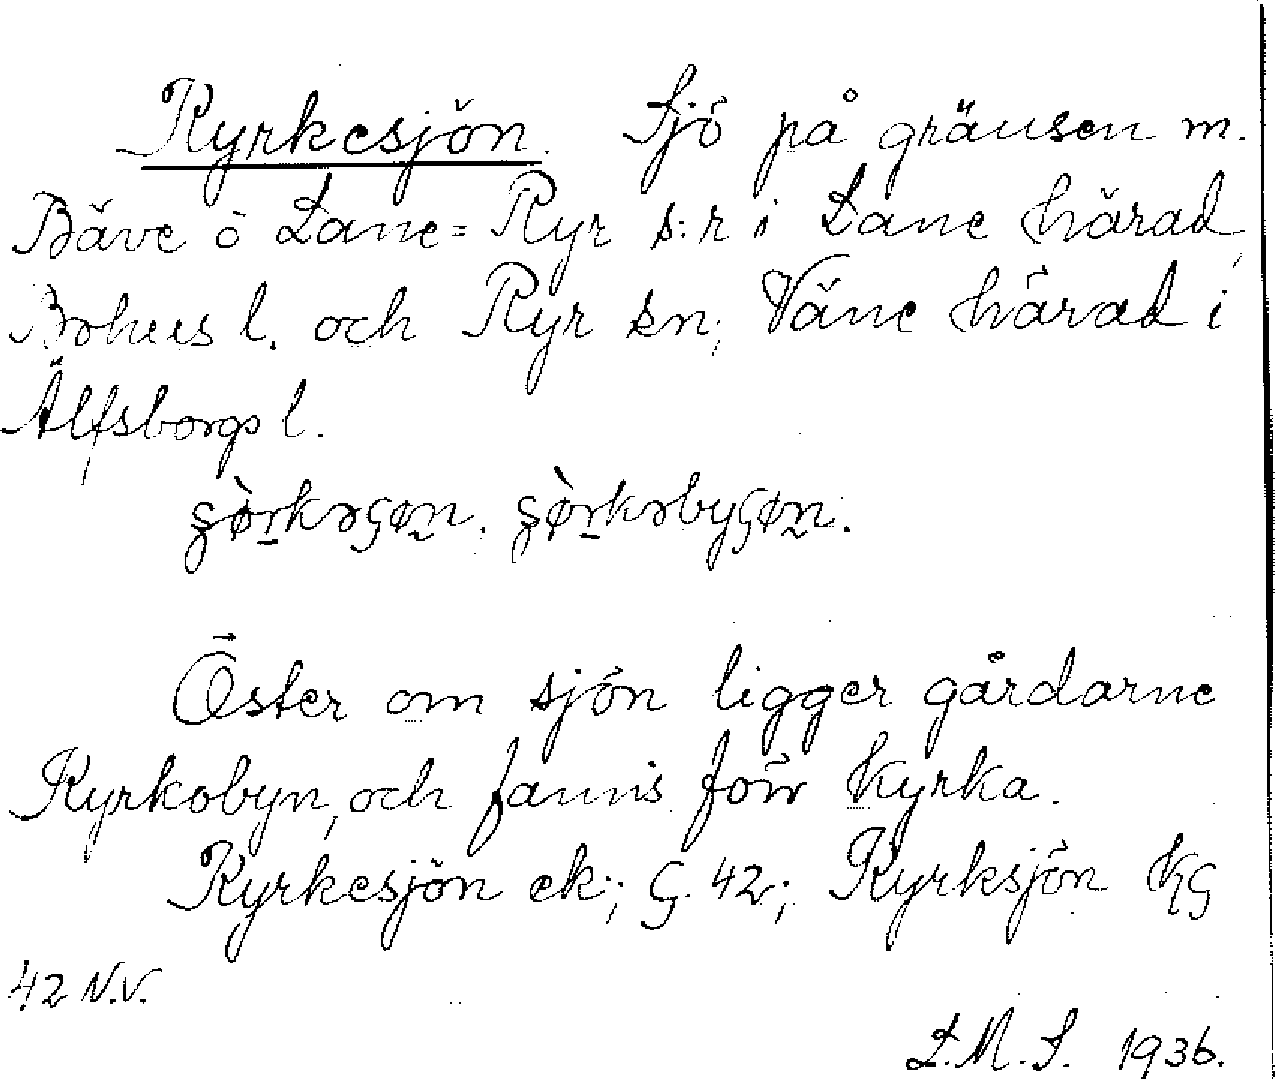 Kyrkesjön. Sjö på gränsen m.
Bäve o Lane-Ryr s:r i Lane härad,
Bohus l. och Ryr sn, Väne härad i
Älfsborgs l.
Öster om sjön ligger gårdarne
Kyrkobyn, och fanns förr kyrka.
Kyrkesjön ek.; G. 42; Kyrksjön KG
42 N.V.
L.M.S. 1936.